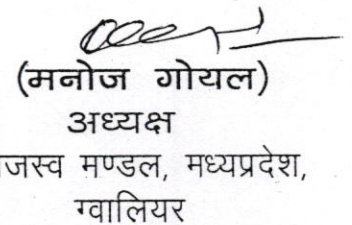 (मनोज गोयल)
अध्यक्ष
जस्व मण्डल, मध्यप्रदेश,
ग्वालियर